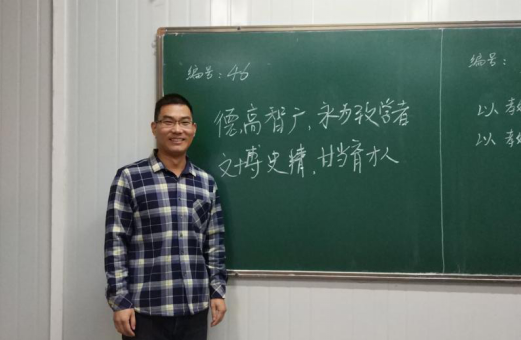 编号:46
德高智广,永为致学者
文博史精,甘当育才人
编号:
以教
以教